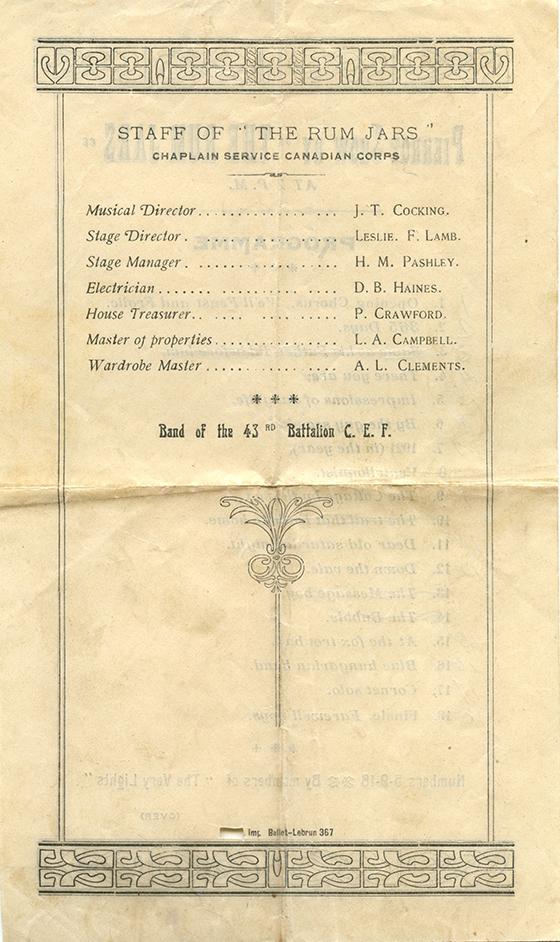 STAFF OF "THE RUM JARS"
CHAPLAIN SERVICE CANADIAN CORPS
Musical Director . . . . . . . . . . . . . . . . J. T. COCKING.
Stage Director . . . . . . . . . . . . . . . . LESLIE. F. LAMB.
Stage Manager . . . . . . . . . . . . . . . . H. M. PASHLEY.
Electrician . . . . . . . . . . . . . . . . D. B. HAINES.
House Treasurer . . . . . . . . . . . . . . P. CRAWFORD.
Master of properties . . . . . . . . . . . . . . L. A. CAMPBELL.
Wardrobe Master . . . . . . . . . . . . . . A. L. CLEMENTS.
* * *
Band of the 43 RD Battalion C. E. F.
Imp. Ballet-Lebrun 367